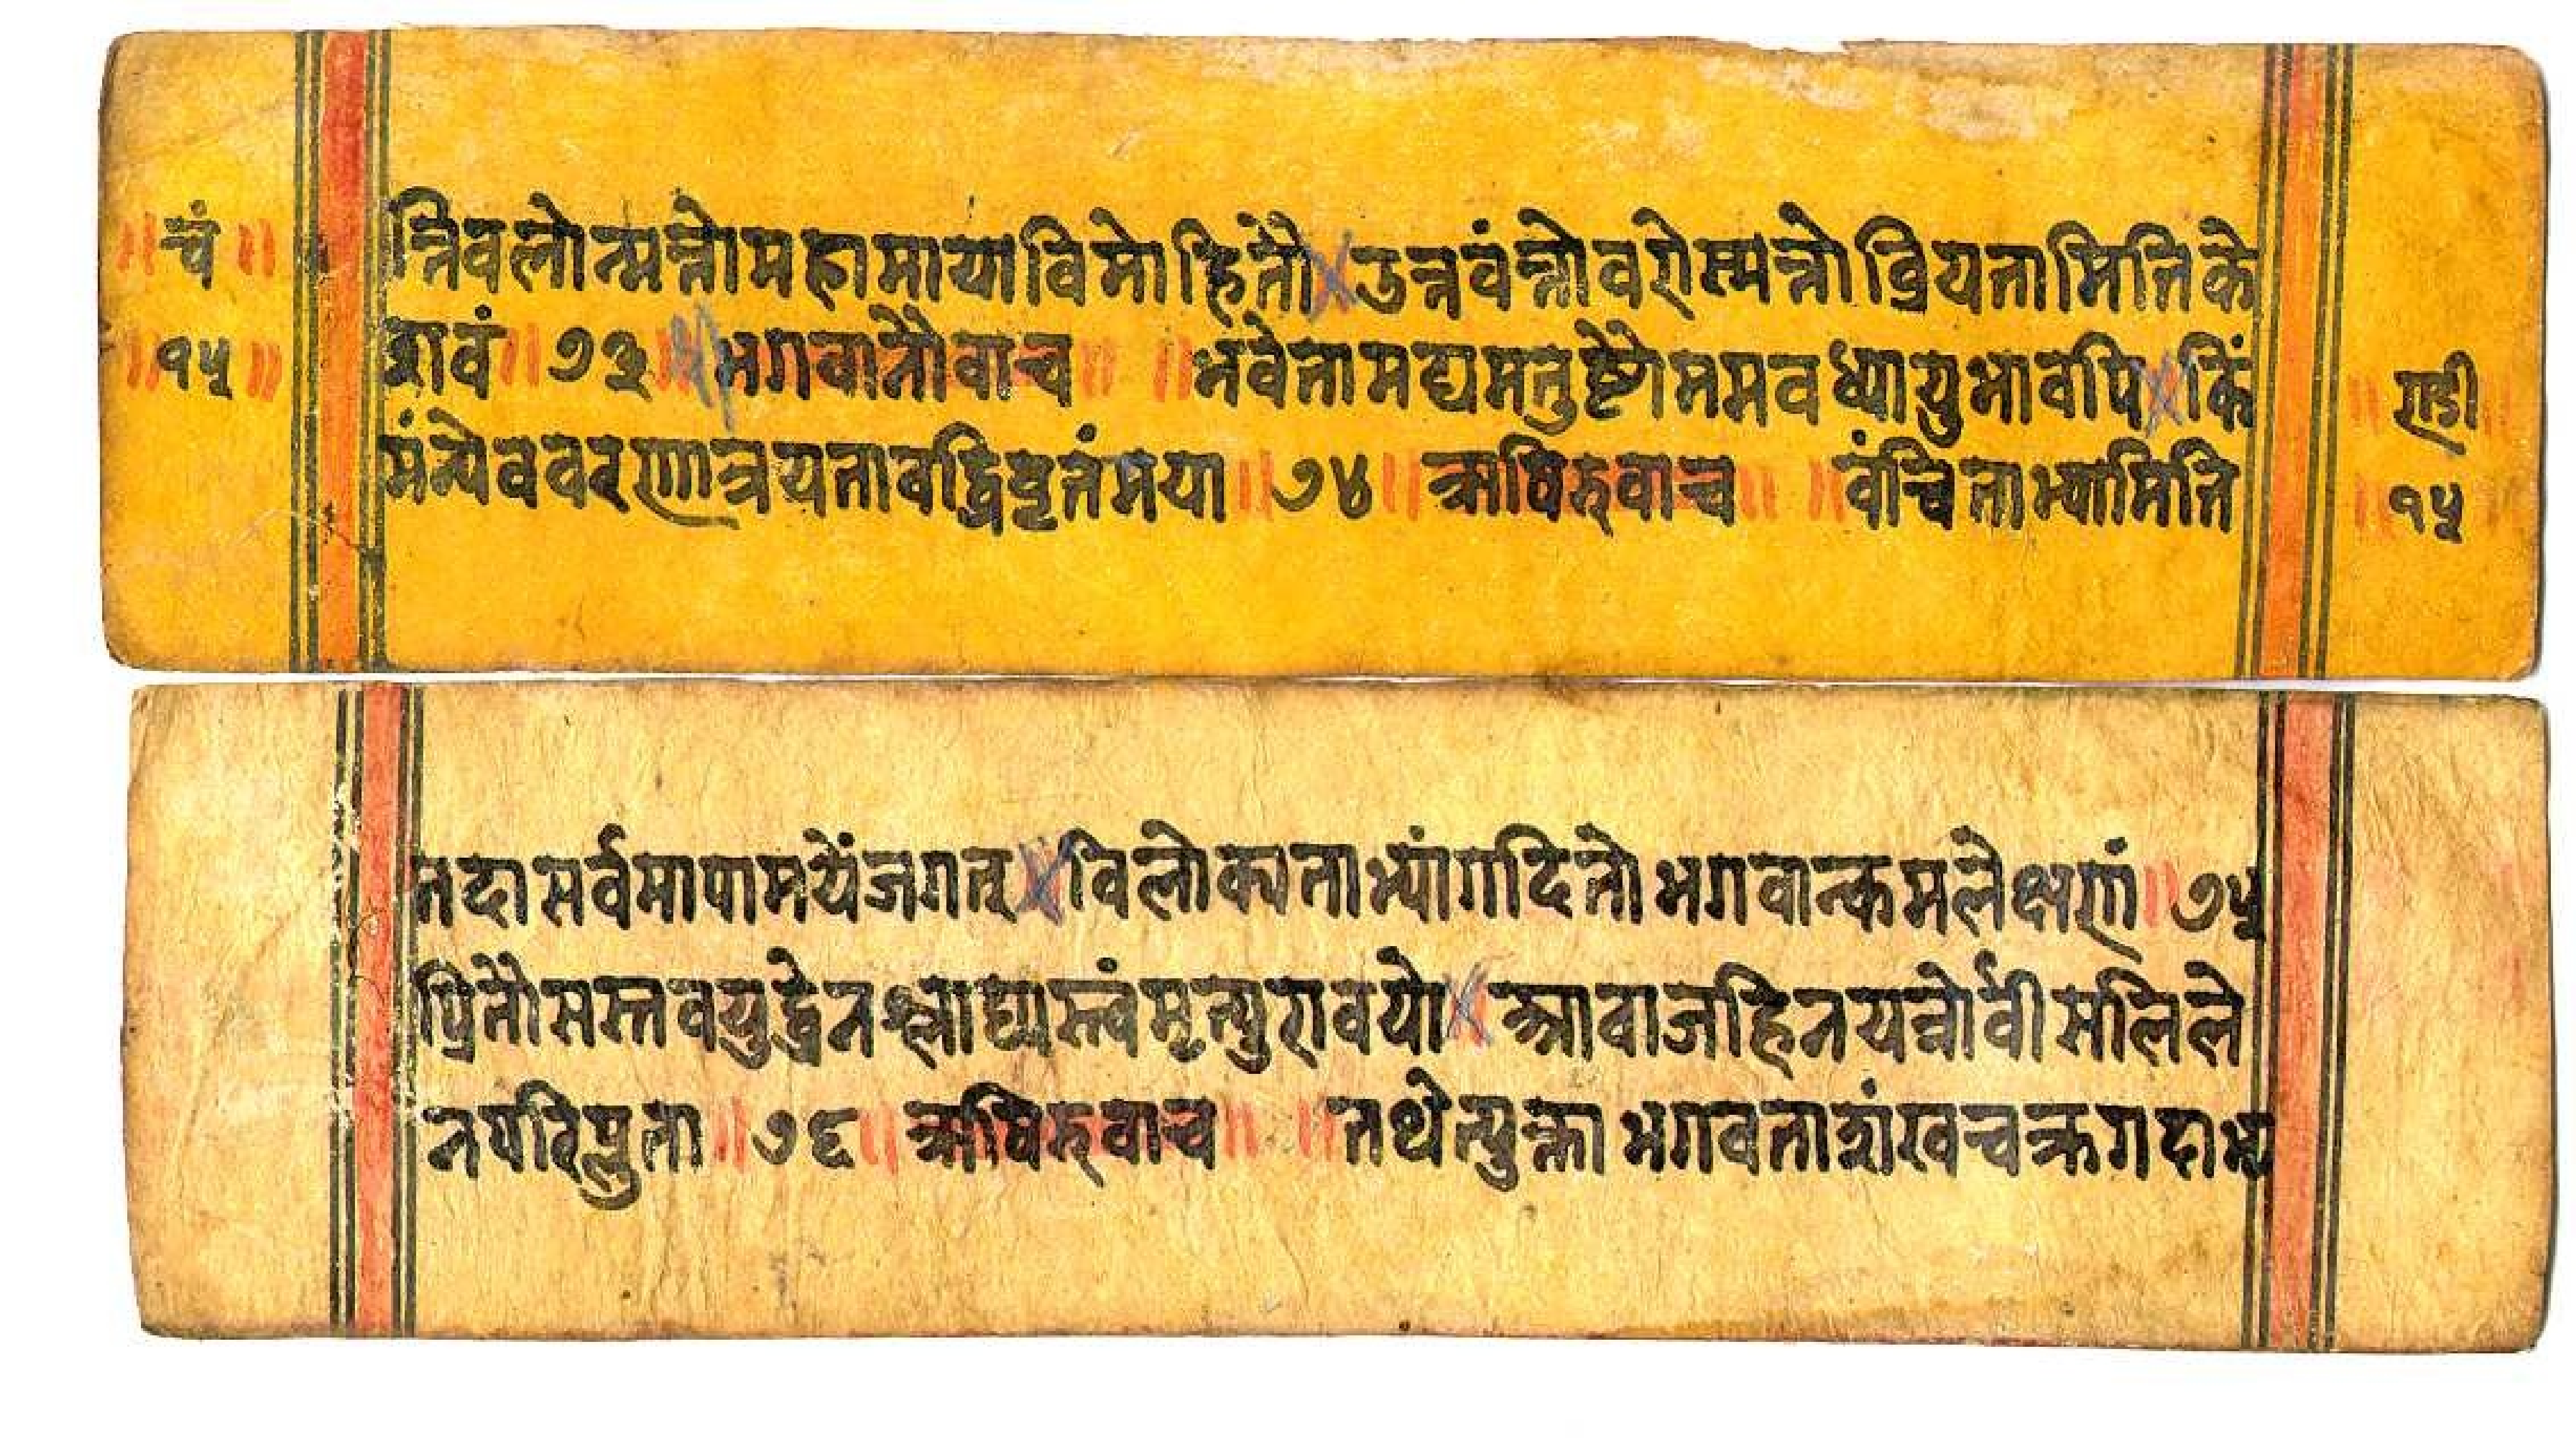 चं
१५
तिवलोन्मत्तोमहामायाविमोहितौ उत्तवंत्तोवरोस्मत्तोव्रियतामितिके
शवं ॥ ७३ ॥ भगवानौवाच ॥ ॥ भवेतामद्यमतुष्टौममवध्यायुभावपि किं
मंन्येववरणात्रयतावद्धिवृतंमया ॥ ७४ ॥ ऋषिरुवाच ॥ ॥ वंचिताभ्यामिति
ण्डी
१५
तदासर्वमापामयंजगत् विलोक्यताभ्यांगदितोभगवान्कमलेक्षणं ॥ ७५
प्रितौसस्तवयुद्धेनश्लाघ्यस्त्वंमृत्युरावयो आवाजहिनयत्रोर्वीसलिले
नपरिप्लुता ॥ ७६ ॥ ऋषिरुवाच ॥ ॥ तथेत्युक्त्वाभगवताशंखचक्रगदाभृ